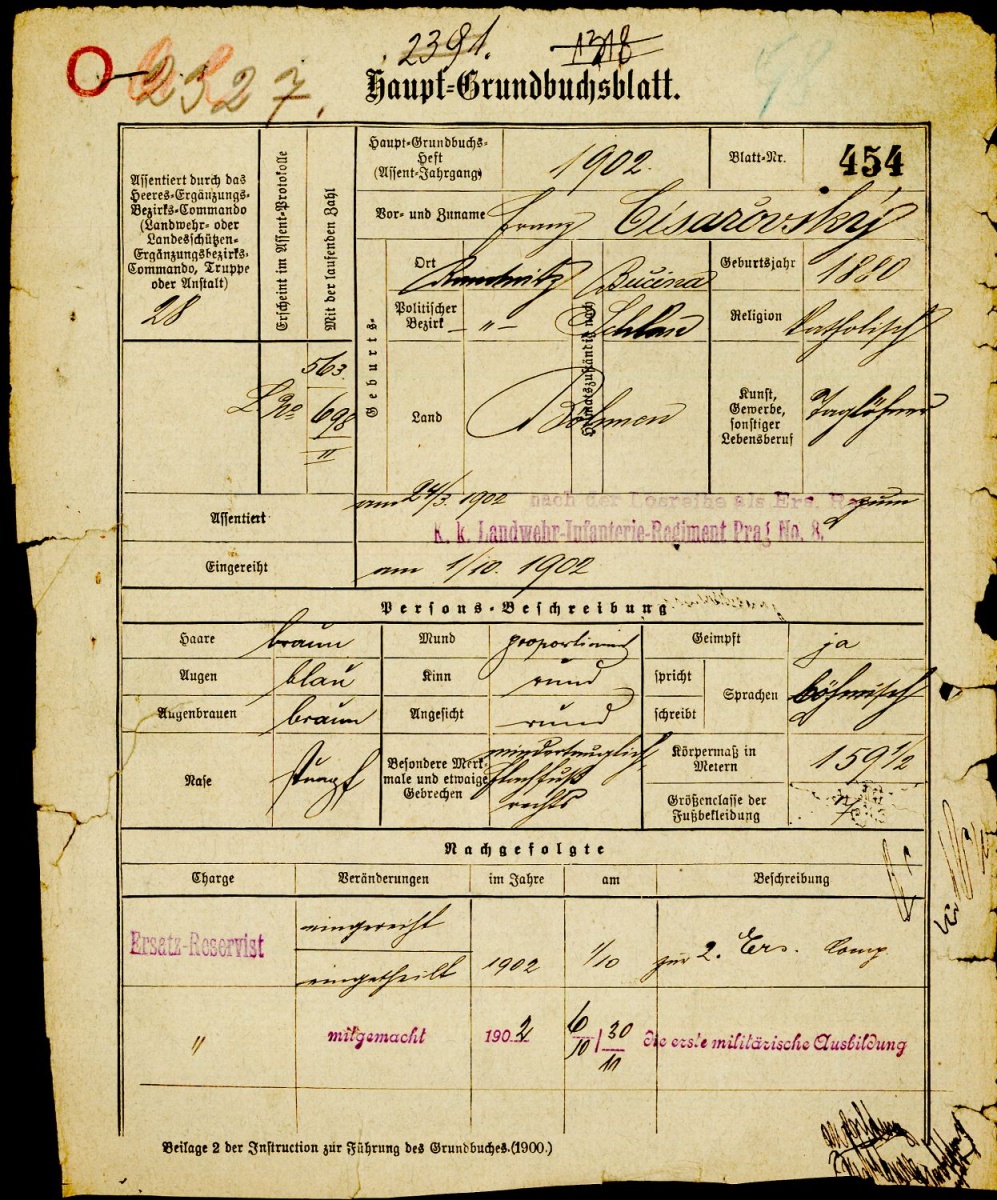 2391. 1318
2327. 98
Haupt-Grundbuchsblatt.
Assentiert durch das
Heeres-Ergänzungs-
Bezirks-Commando
(Landwehr- oder
Landesschützen-
Ergänzungsbezirks-
Commando, Truppe
oder Anstalt)
28
Erscheint im Assent-Protokolle
Mit der laufenden Zahl
563
698
II
Haupt-Grundbuchs-
Heft
(Assent-Jahrgang)
1902.
Blatt-Nr.
454
Vor- und Zuname
Franz Císařovský
Geburts-
Ort
Raudnitz
Heimatszuständig nach
Bučina
Geburtsjahr
1880
Politischer
Bezirk
— " —
Schlan
Religion
katholisch
Land
Böhmen
Kunst,
Gewerbe,
sonstiger
Lebensberuf
Taglöhner
Assentiert
am 24/3. 1902 nach der Losreihe als Ers. Res. zum
K. k. Landwehr-Infanterie-Regiment Prag No. 8.
Eingereiht
am 1/10. 1902
Persons-Beschreibung
Haare
braun
Mund
proportionirt
Geimpft
ja
Augen
blau
Kinn
rund
spricht
schreibt
Sprachen
böhmisch
Augenbrauen
braun
Angesicht
rund
Nase
stumpf
Besondere Merk-
male und etwaige
Gebrechen
mindertauglich,
Plattfuß
rechts
Körpermaß in
Metern
159 1/2
Größenclasse der
Fußbekleidung
Nachgefolgte
Charge
Veränderungen
im Jahre
am
Beschreibung
Ersatz-Reservist
eingereiht
eingetheilt
1902
1/10
zur 2. Ers. Comp
"
mitgemacht
1902
6/10 / 30/10
die erste militärische Ausbildung
Beilage 2 der Instruction zur Führung des Grundbuches. (1900.)